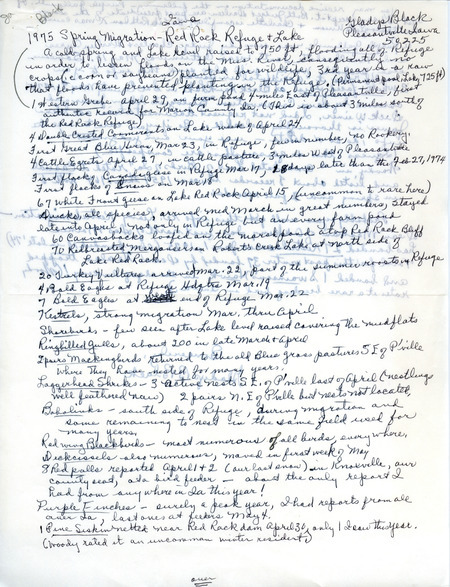 Iowa
Gladys Black
Pleasantville, Iowa
50225
1975 Spring Migration - Red Rock Refuge & Lake
A cold spring and Lake level raised to 750 ft, flooding all of Refuge
in order to lessen floods on the Miss. River, consequently no
crops (corn or soybeans) planted for wildlife, 3rd year in a row
that floods have prevented planting on the Refuge, (Permanent pool Lake, 725 ft)
1 Western Grebe April 29, on farm pond 4 miles East of Pleasantville, first
authentic record for Marion County, Ia, (This is about 3 miles south of
the Red Rock Refuge)
4 Double Crested Cormorants on Lake week of April 24
First Great Blue Heron, Mar 23, in Refuge, few in number, no Rookery.
4 Cattle Egrets April 27, in cattle pasture, 3 miles West of Pleasantville
First flock, Canada geese in Refuge Mar 17, 18 days late than the Feb 27, 1974
First flock of Snows on Mar 18
67 White Front geese on Lake Red Rock April 15, (uncommon to rare here)
Ducks, all species, arrived mid March in great numbers, stayed
late into April, not only in Refuge but on every farm pond
60 Canvasbacks stayed on the marsh ponds atop Red Rock Bluff
70 Redbreasted Mergansers on Roberts Creek Lake at north side of
Lake Red Rock.
20 Turkey Vultures arrived Mar. 22, part of the summer roost in Refuge
4 Bald Eagles at Refuge Hdqtrs Mar. 19
7 Bald Eagles at end of Refuge Mar. 22
Kestrels, strong migration Mar. thru April.
Shorebirds - few seen after Lake level raised covering the mudflats
Ringbilled Gulls, about 200 in late March & April
2 pairs Mockingbirds returned to the old Blue grass pastures 5 E of P'ville
where they have nested for many years.
Loggerhead Shrikes - 3 active nests S.E. of P'ville last of April (nestlings
well feathered now) 2 pairs N.E. of P'ville but nests not located,
Bobolinks - south side of Refuge, during migration and
some remaining to nest in the same field used for
many years.
Redwing Blackbirds - most numerous of all birds, everywhere,
Dickcissels - also numerous, moved in first week of May
8 Redpolls reported April 1 & 2 (our last snow) in Knoxville, our
county seat, at a bird feeder - about the only report I
had from anywhere in Ia this year!
Purple Finches - surely a peak year, I had reports from all
over Ia, last ones at feeders May 4.
1 Pine Siskin netted near Red Rock dam April 30, only 1 I saw this year.
(Woody rated it an uncommon winter resident)
over